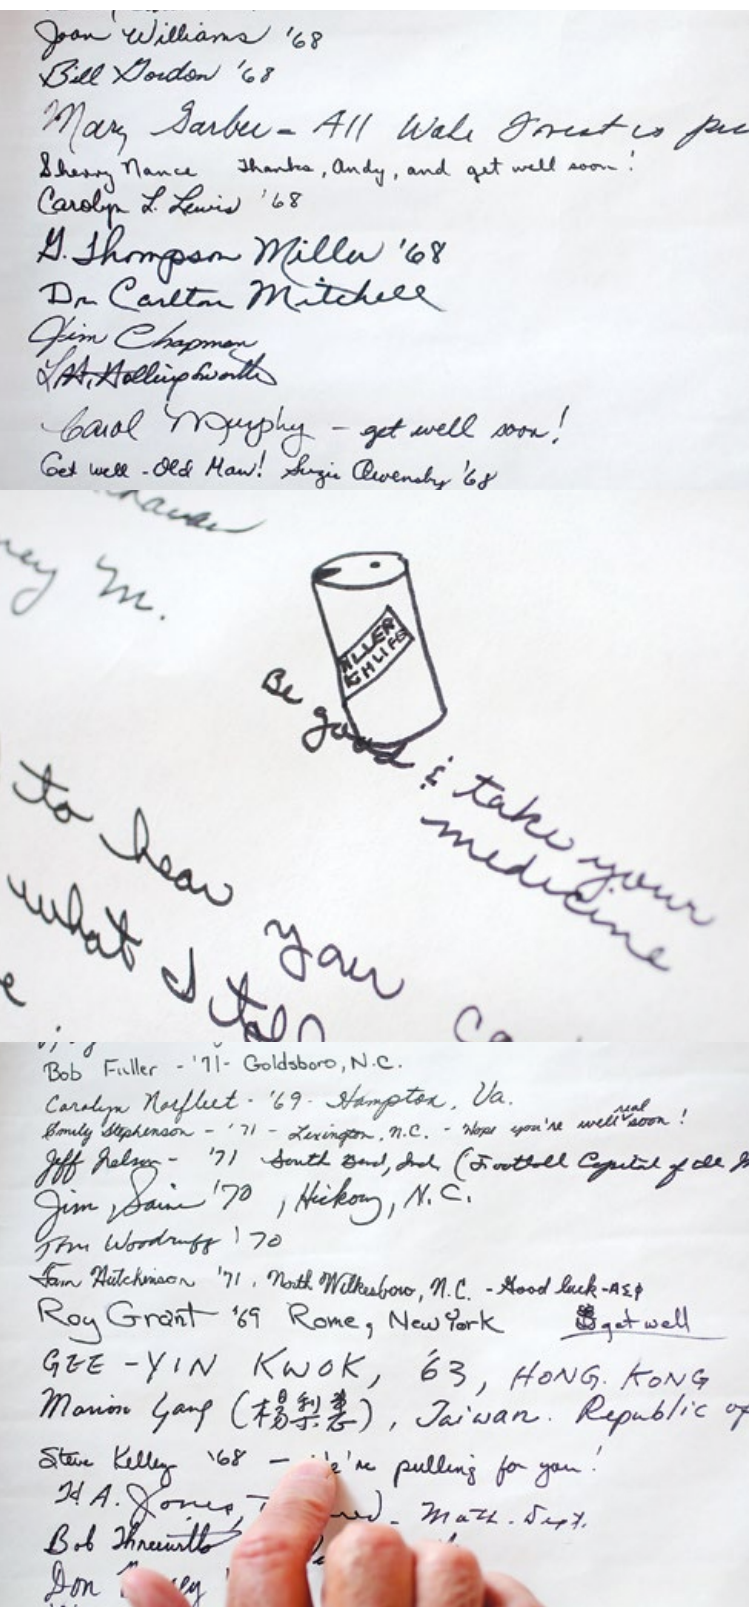 Joan Williams '68
Bill Gordon '68
Mary Garber - All Wake Forest is
Sherry Nance Thanks, Andy, and get well soon!
Carolyn L. Lewis '68
G. Thompson Miller '68
Dr. Carlton Mitchell
Jim Chapman
Hollingsworth
Carol Murphy - get well soon!
Get well - Old Man! Suzie Owensby '68
M.
ILLER
GH LIFE
Be good & take your
medicine
to hear your
what I
Bob Fuller - '71 - Goldsboro, N.C.
Carolyn Norfleet - '69 - Hampton, Va.
Emily Stephenson - '71 - Lexington, N.C. - Hope you're well real soon!
Jeff - '71 South Bend, Ind. (Football Capital of the
Jim '70, Hickory, N.C.
Tom Woodruff '70
Hutchinson '71, North Wilkesboro, N.C. - Good luck - ΑΣΦ
Roy Grant '69 Rome, New York get well
GEE-YIN KWOK, '63, HONG KONG
Marion Yang (楊梨), Taiwan. Republic of
Steve Kelley '68 - We're pulling for you!
H A. Jones, - Math. Dept.
Bob
Don